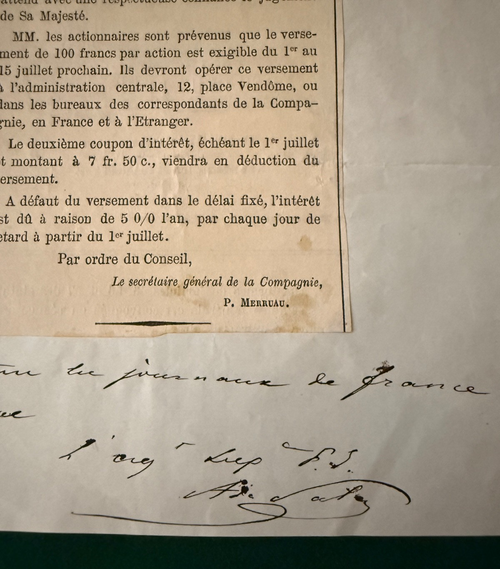 de Sa Majesté.
MM. les actionnaires sont prévenus que le verse-
ment de 100 francs par action est exigible du 1er au
15 juillet prochain. Ils devront opérer ce versement
à l'administration centrale, 12, place Vendôme, ou
dans les bureaux des correspondants de la Compa-
gnie, en France et à l'Etranger.
Le deuxième coupon d'intérêt, échéant le 1er juillet
et montant à 7 fr. 50 c., viendra en déduction du
versement.
A défaut du versement dans le délai fixé, l'intérêt
est dû à raison de 5 0/0 l'an, par chaque jour de
retard à partir du 1er juillet.
Par ordre du Conseil,
Le secrétaire général de la Compagnie,
P. MERRUAU.
journaux de france